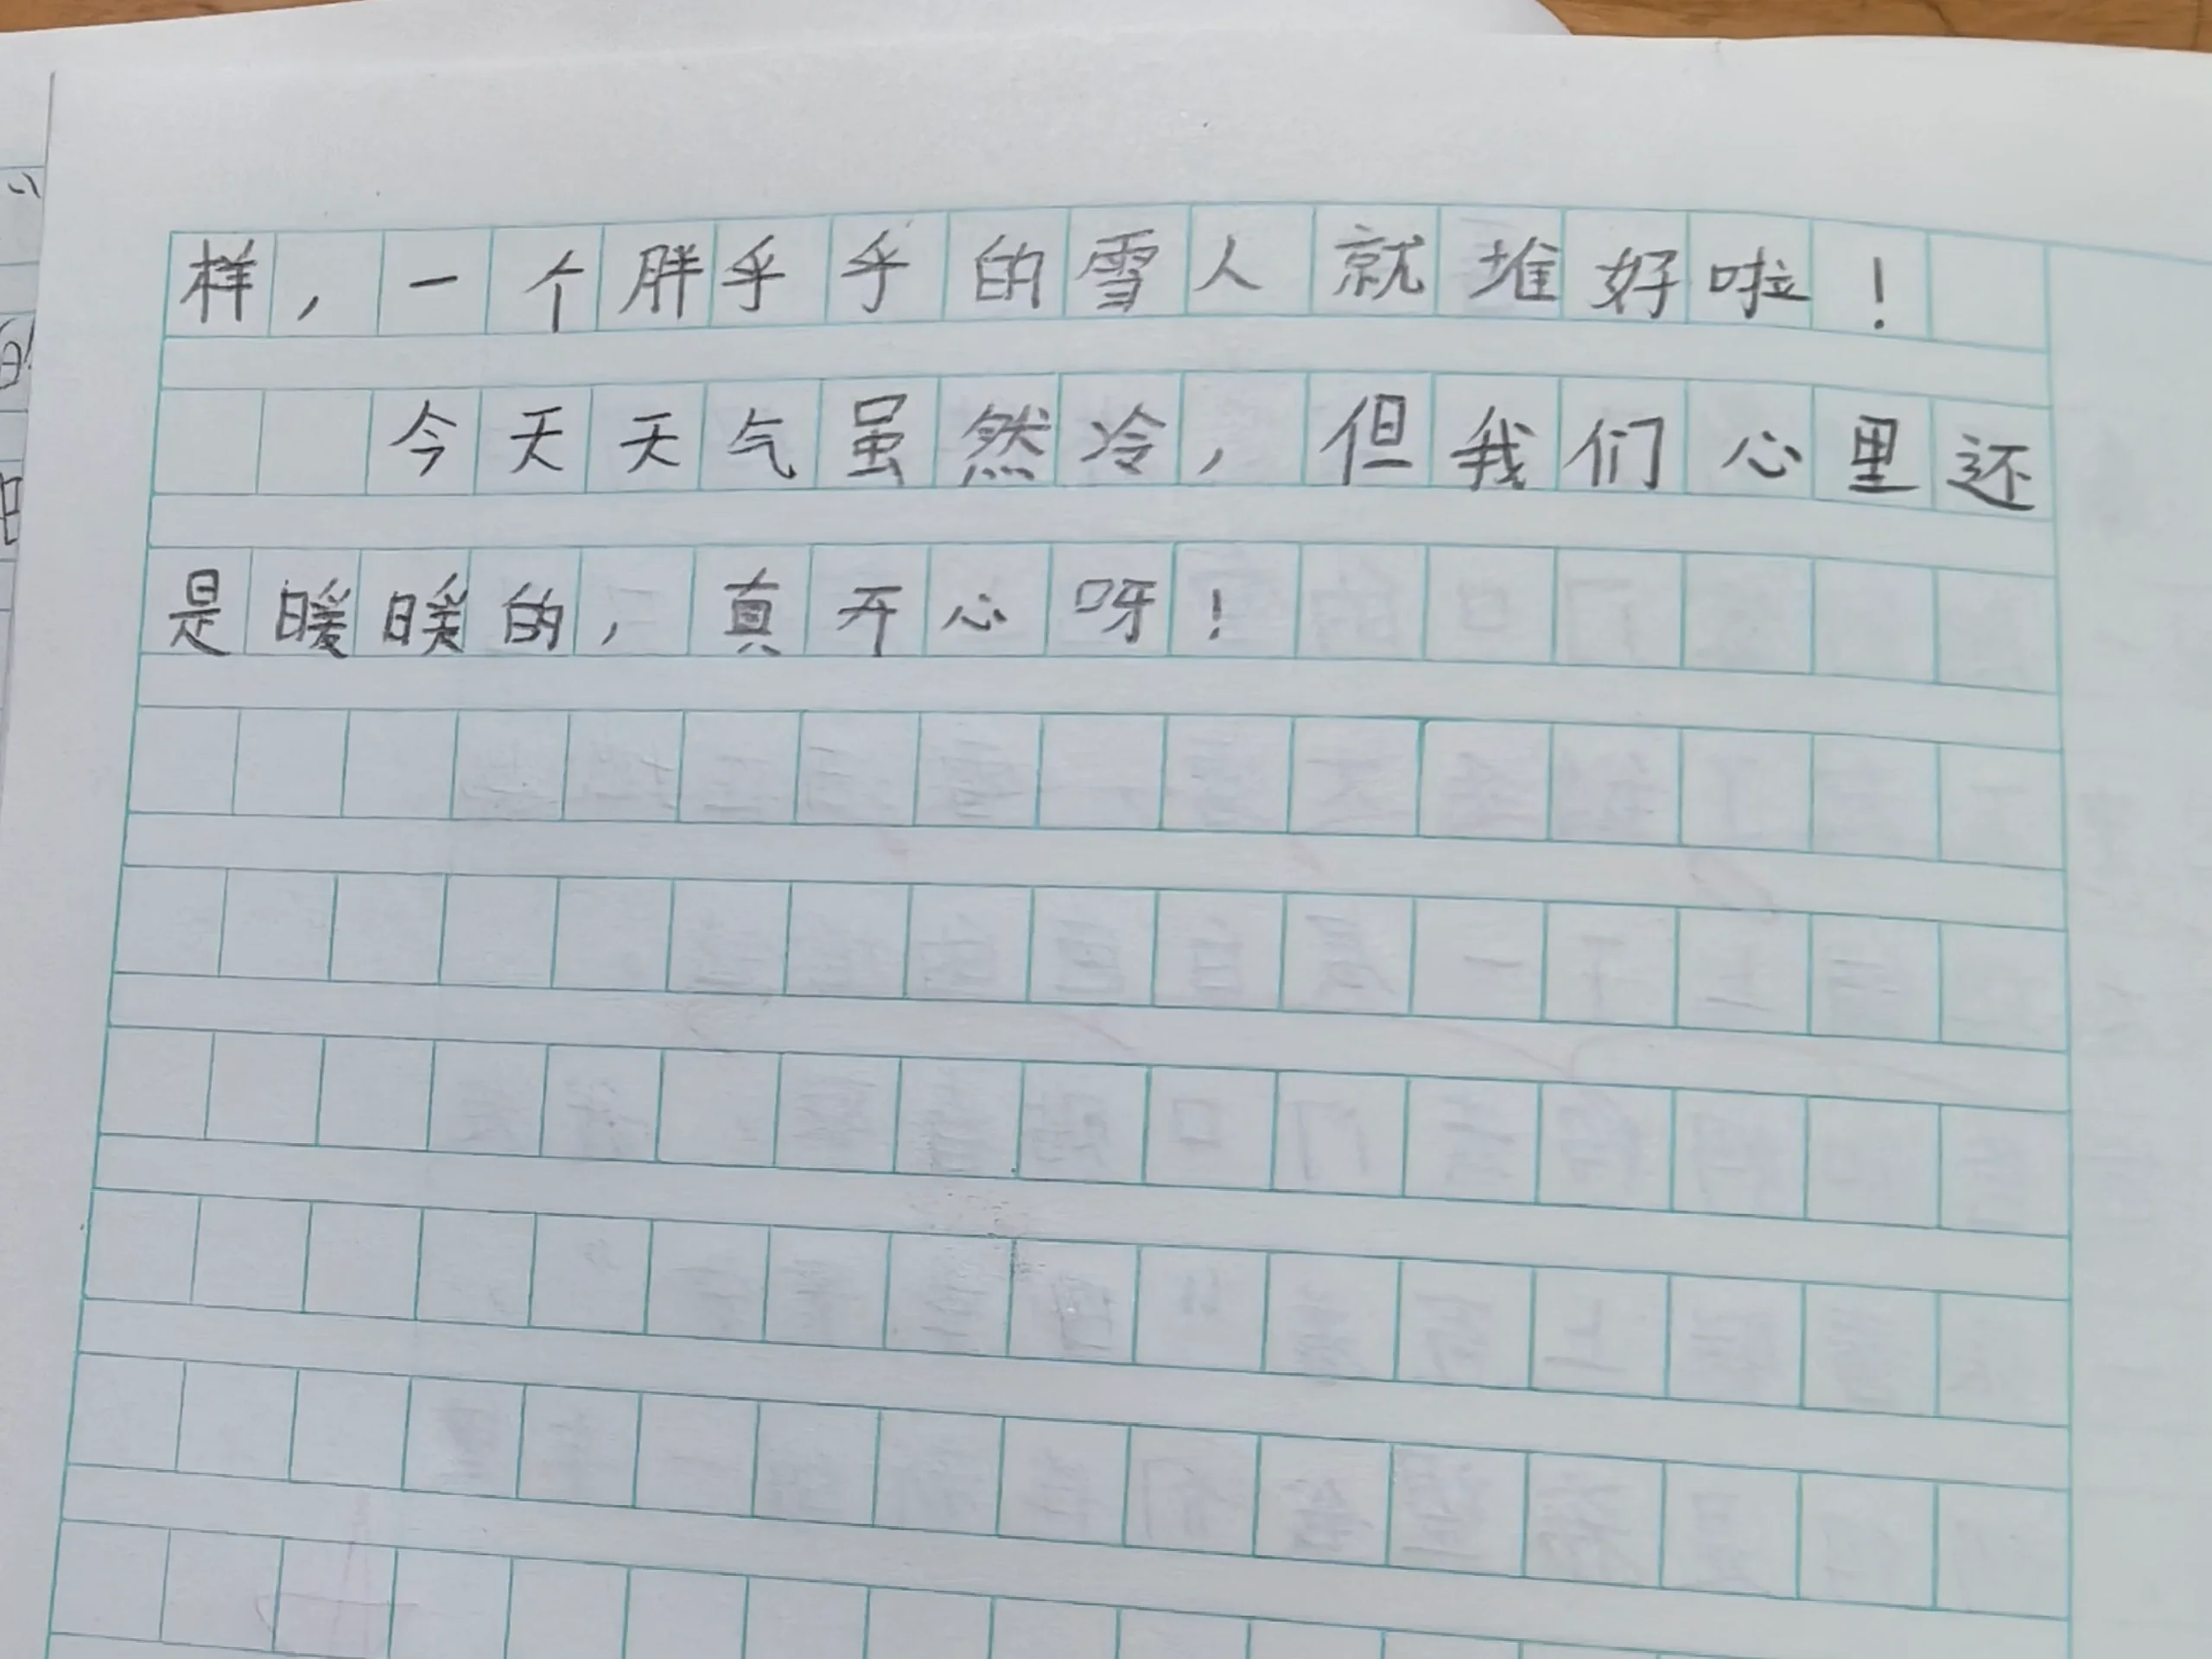 样，一个胖乎乎的雪人就堆好啦！
今天天气虽然冷，但我们心里还
是暖暖的，真开心呀！